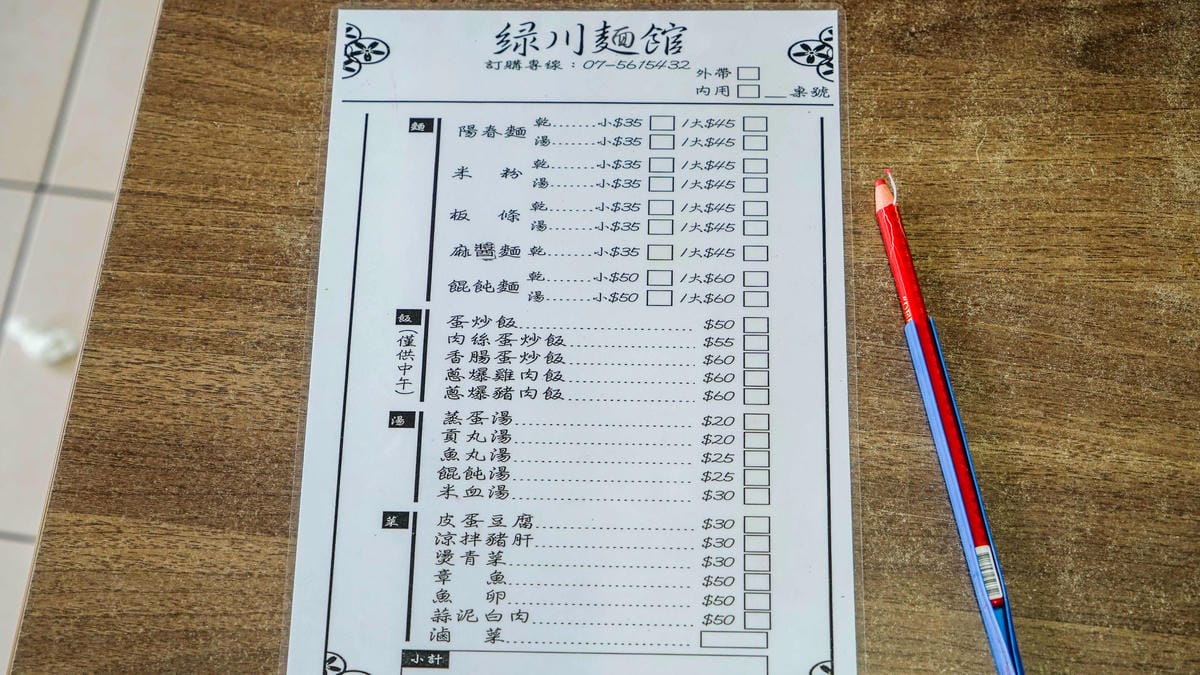 綠川麵館
訂購專線：07-5615432
外帶
內用__桌號
麵
陽春麵 乾.......小$35 /大$45
湯.......小$35 /大$45
米 粉 乾.......小$35 /大$45
湯.......小$35 /大$45
板 條 乾.......小$35 /大$45
湯.......小$35 /大$45
麻醬麵 乾.......小$35 /大$45
餛飩麵 乾.......小$50 /大$60
湯.......小$50 /大$60
飯(僅供中午)
蛋炒飯 $50
肉絲蛋炒飯 $55
香腸蛋炒飯 $60
蔥爆雞肉飯 $60
蔥爆豬肉飯 $60
湯
蒸蛋湯 $20
貢丸湯 $20
魚丸湯 $25
餛飩湯 $25
米血湯 $30
菜
皮蛋豆腐 $30
涼拌豬肝 $30
燙青菜 $30
章 魚 $50
魚 卵 $50
蒜泥白肉 $50
滷 菜
小計